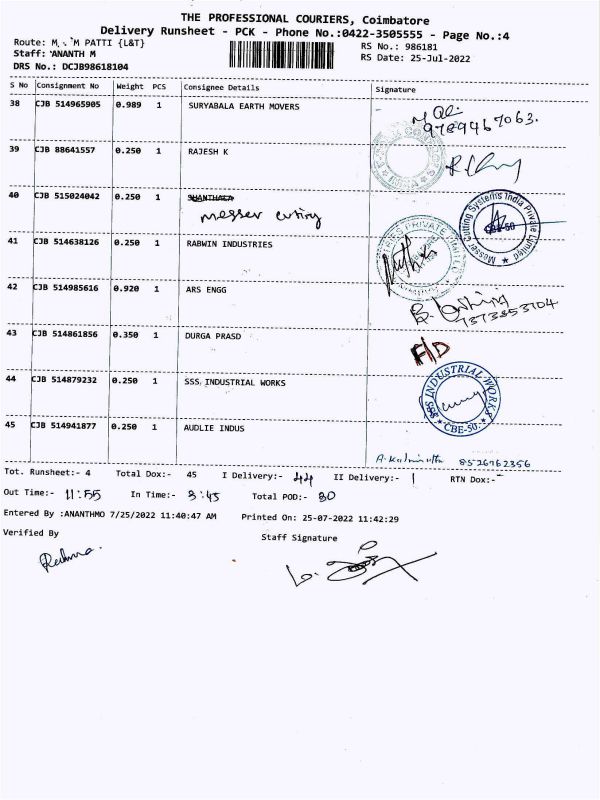 THE PROFESSIONAL COURIERS, Coimbatore
Delivery Runsheet - PCK - Phone No.:0422-3505555 - Page No.:4
Route: M M PATTI {L&T}
RS No.: 986181
Staff: ANANTH M
RS Date: 25-Jul-2022
DRS No.: DCJB98618104
S No Consignment No Weight PCS Consignee Details Signature
38 CJB 514965905 0.989 1 SURYABALA EARTH MOVERS
9789467063.
39 CJB 88641557 0.250 1 RAJESH K
40 CJB 515024042 0.250 1
messer cuting
Messer Cutting Systems India Private Limited
CBE-50
41 CJB 514638126 0.250 1 RABWIN INDUSTRIES
PRIVATE LIMITED
42 CJB 514985616 0.920 1 ARS ENGG
7373853704
43 CJB 514861856 0.350 1 DURGA PRASD
F/D
44 CJB 514879232 0.250 1 SSS INDUSTRIAL WORKS
SSS INDUSTRIAL WORKS
CBE-50.
45 CJB 514941877 0.250 1 AUDLIE INDUS
8526762356
Tot. Runsheet:- 4 Total Dox:- 45 I Delivery:- 44 II Delivery:- 1 RTN Dox:-
Out Time:- 11:55 In Time:- 3:45 Total POD:- 30
Entered By :ANANTHMO 7/25/2022 11:40:47 AM Printed On: 25-07-2022 11:42:29
Verified By
Staff Signature